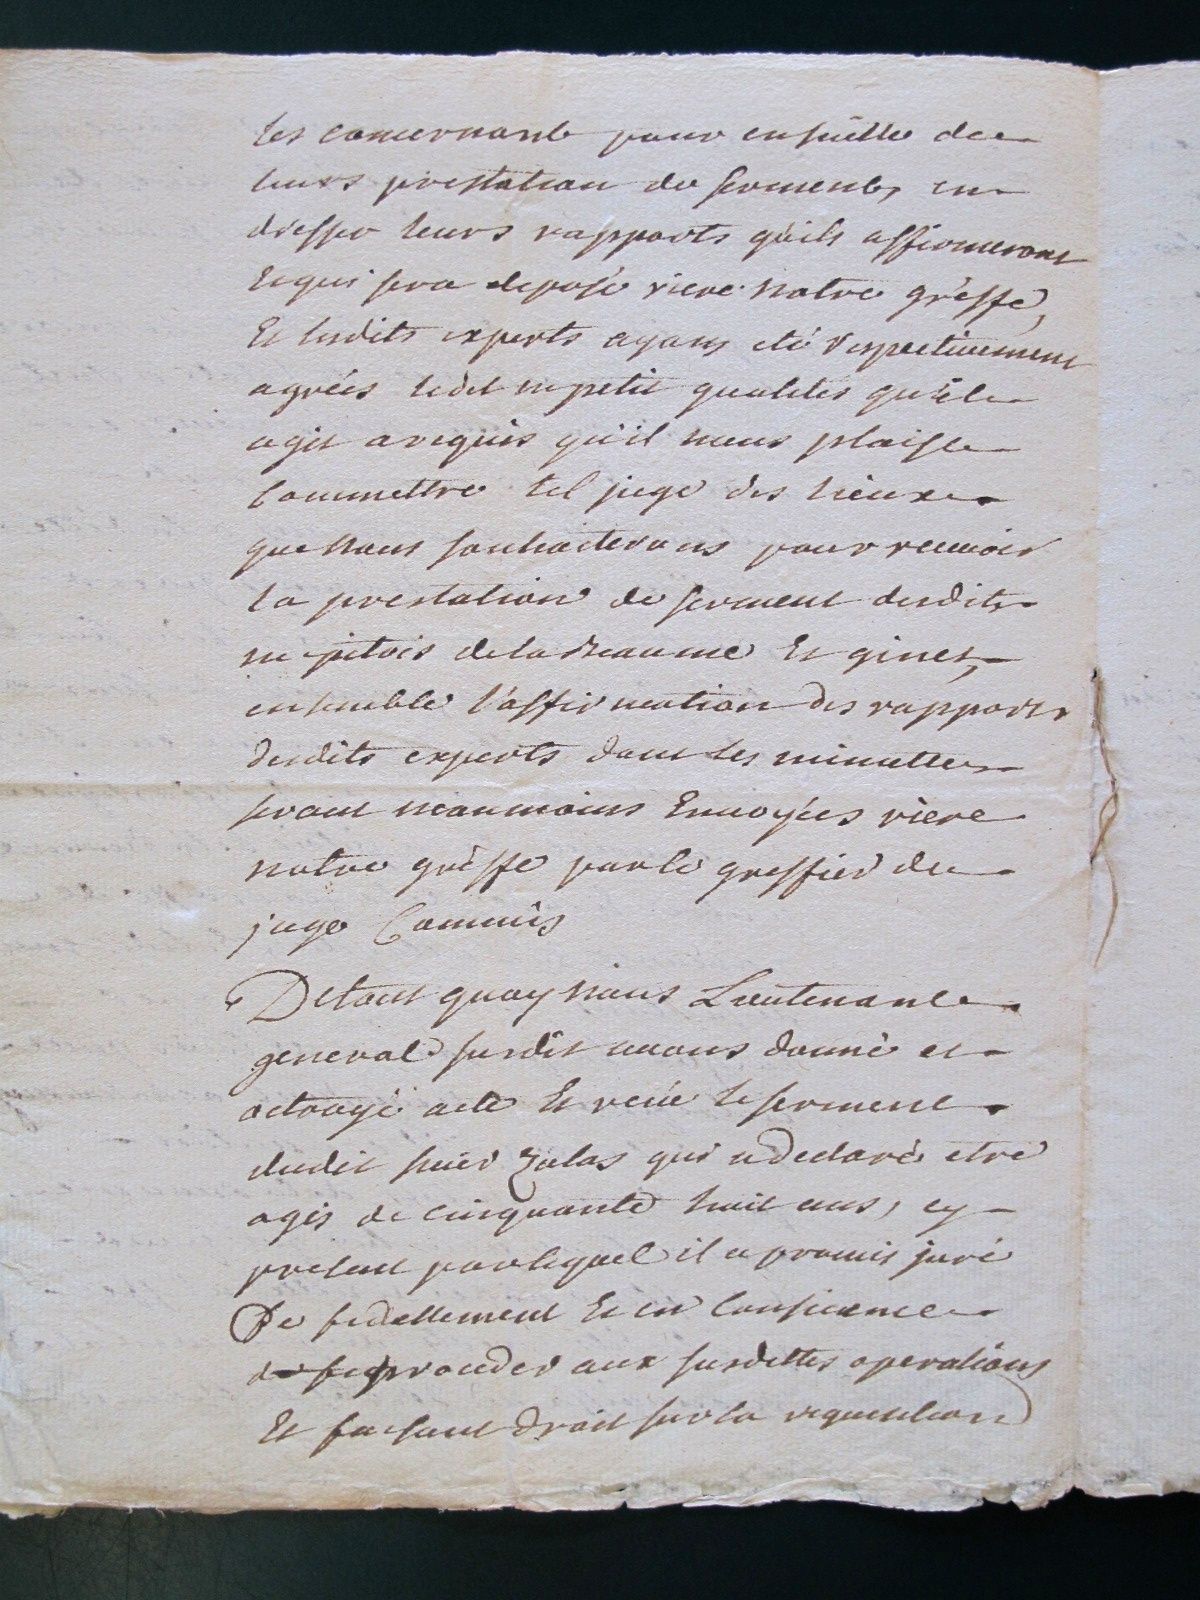 les concernants pour ensuitte de
leurs prestation de serments, en
dresser leurs rapports qu'ils affirmeront
Et qui sera deposé riere notre gréffe,
Et lesdits experts ayans eté respectivement
agréés ledit mr petit qualités qu'il
agit a requis qu'il nous plaise
Commettre tel juge des lieux
que nous souhaiterons pour recevoir
la prestation de serment desdits
mr pitois de la Beaume Et ginet,
ensemble l'affirmation des rapports
desdits experts dont les minuttes
seront neanmoins Envoyées riere
notre gréffe par le greffier du
juge Commis
De tout quoy nous Lieutenant
general susdit avons donné et
octroyé acte Et reçu le serment
dudit sieur Jolas qui a declaré etre
agés de cinquante huit ans, cy
present par lequel il a promis juré
De fidellement Et en Conscience
proceder aux susdittes operations
Et faisant droit sur la requisition